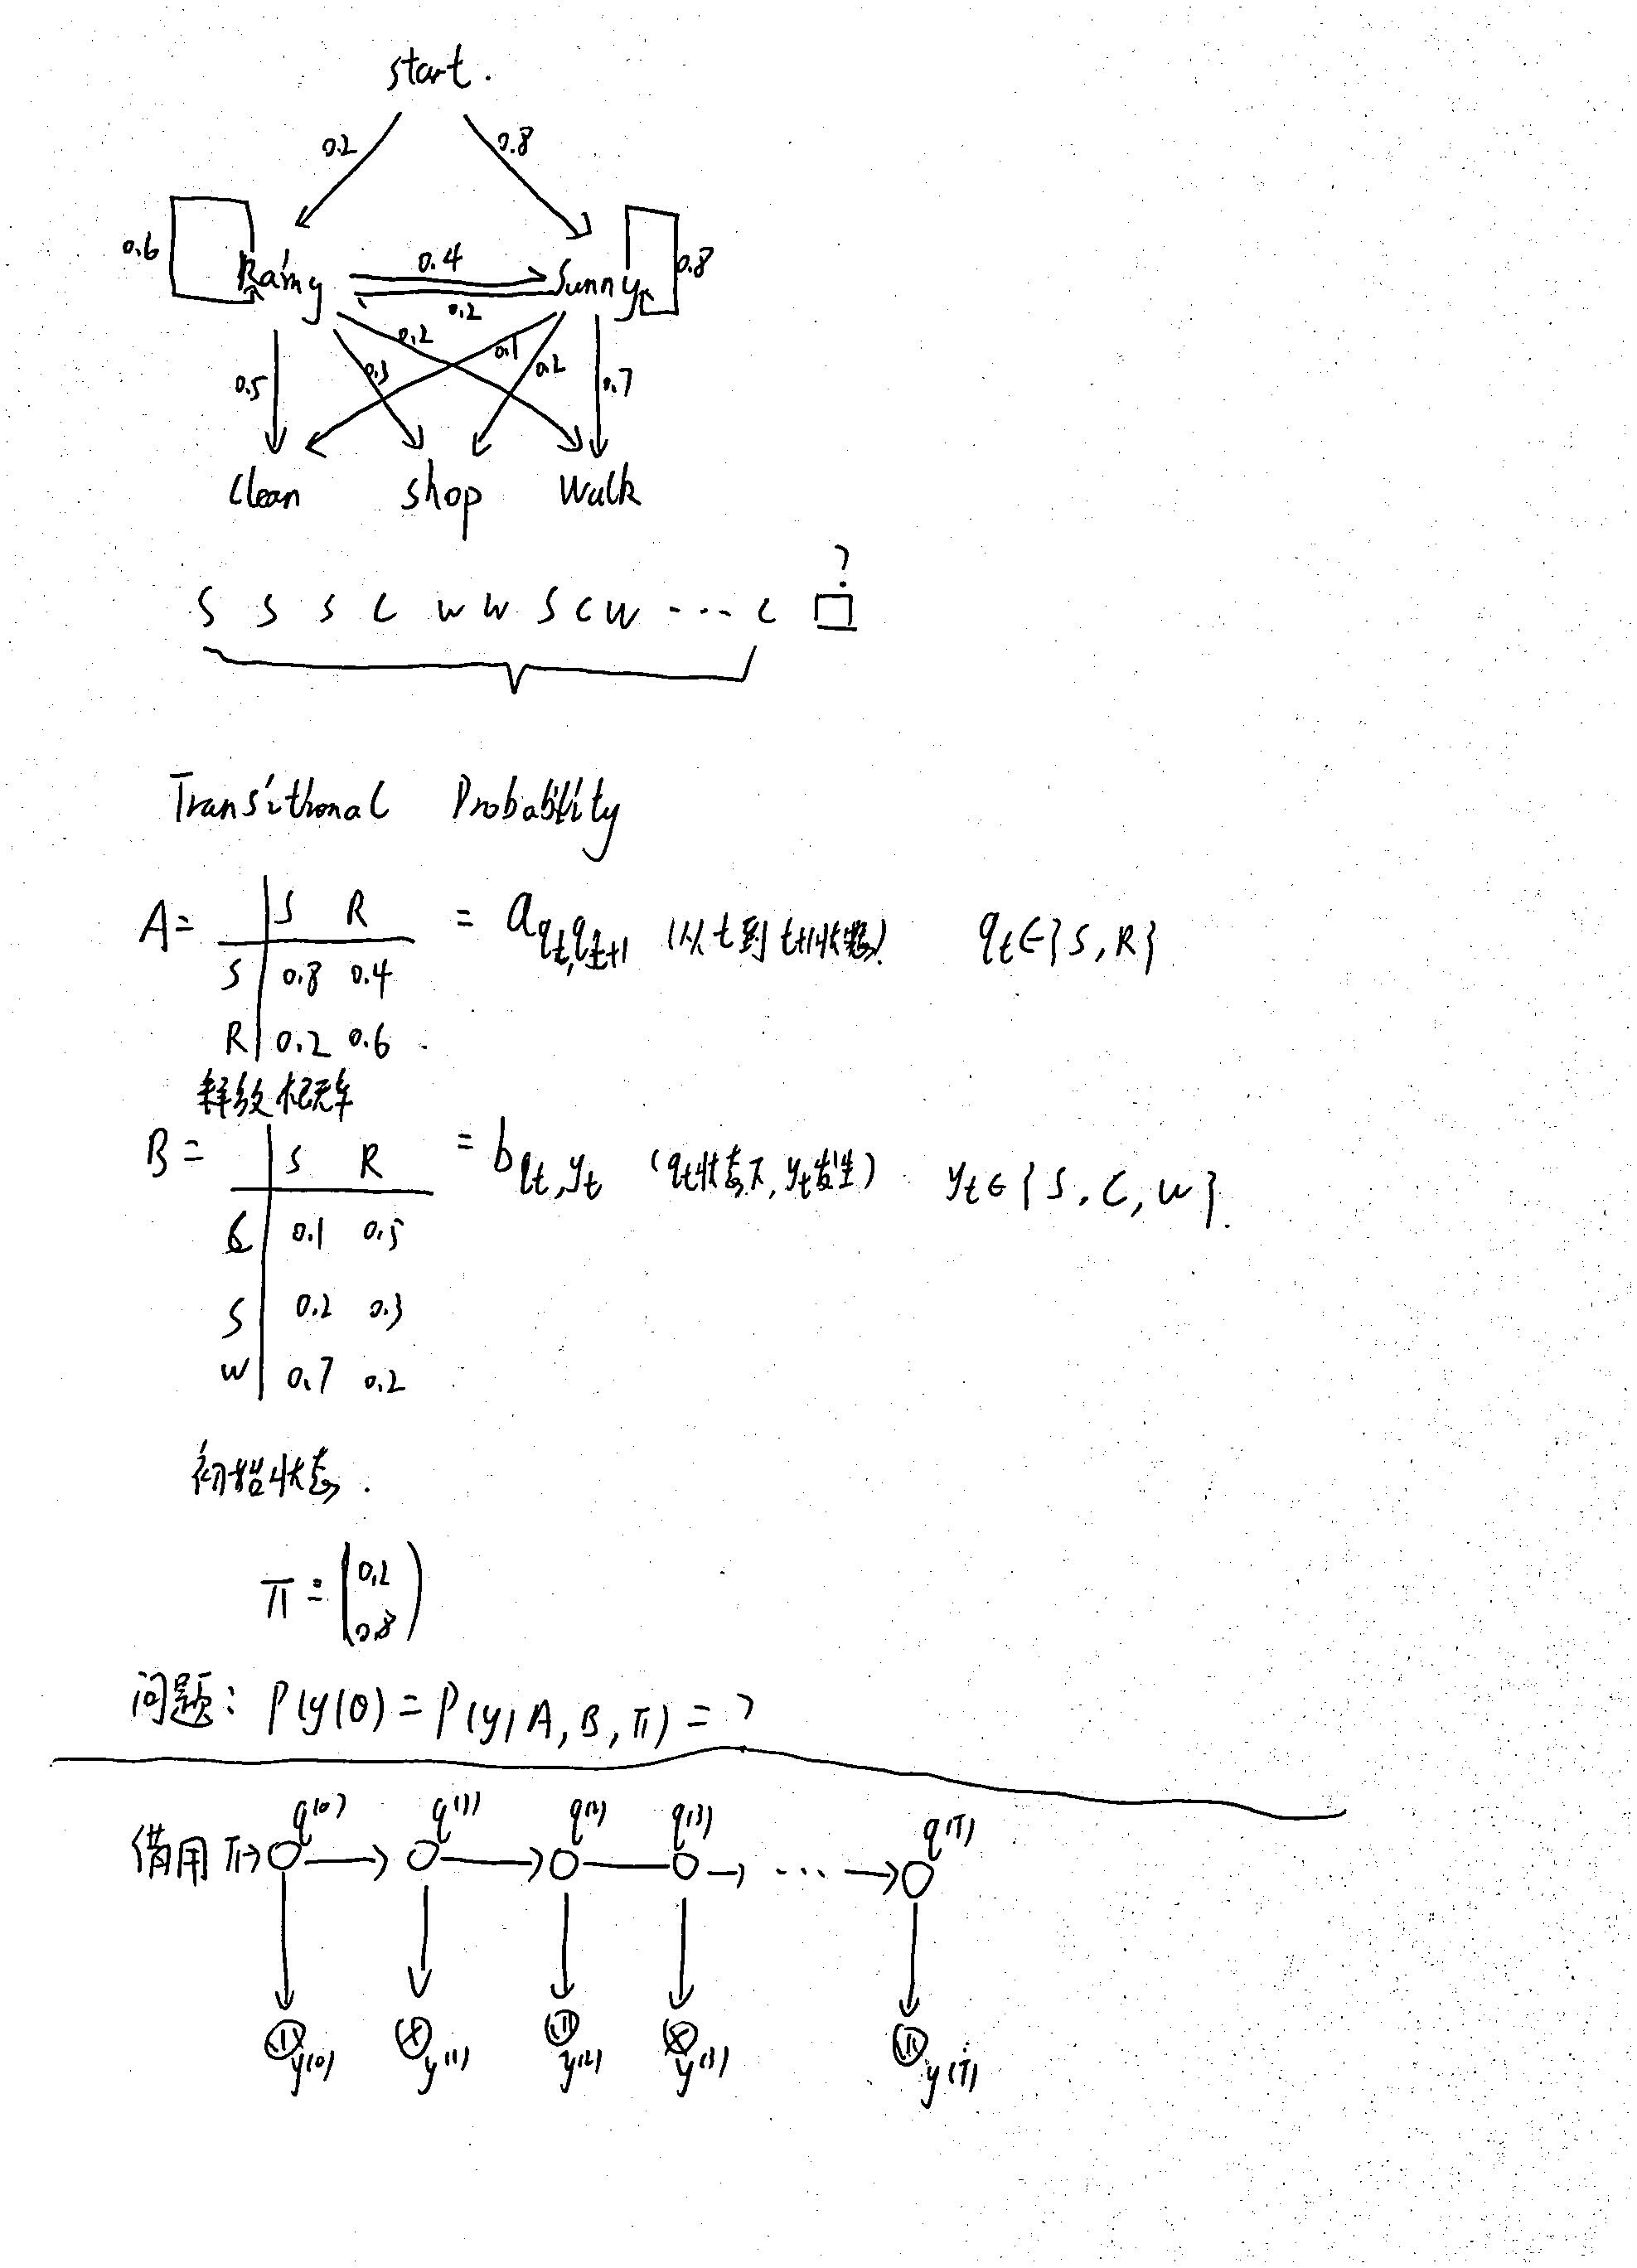 start.
0.2 0.8
0.6 Rainy 0.4 Sunny 0.8
0.2
0.2 0.1
0.5 0.3 0.2 0.7
Clean shop Walk
?
S S S C W W S C W ... C □
Transitional Probability
A= S R = a_{q_t,q_{t+1}} (从t到t+1状态) q_t∈{S,R}
S 0.8 0.4
R 0.2 0.6
释放概率
B= S R = b_{q_t,y_t} (q_t状态下,y_t发生) y_t∈{S,C,W}.
C 0.1 0.5
S 0.2 0.3
W 0.7 0.2
初始状态.
π=(0.2
0.8)
问题: P(y|θ)=P(y|A,B,π)=?
q(0) q(1) q(2) q(3) q(T)
借用 π→ ...
y(0) y(1) y(2) y(3) y(T)